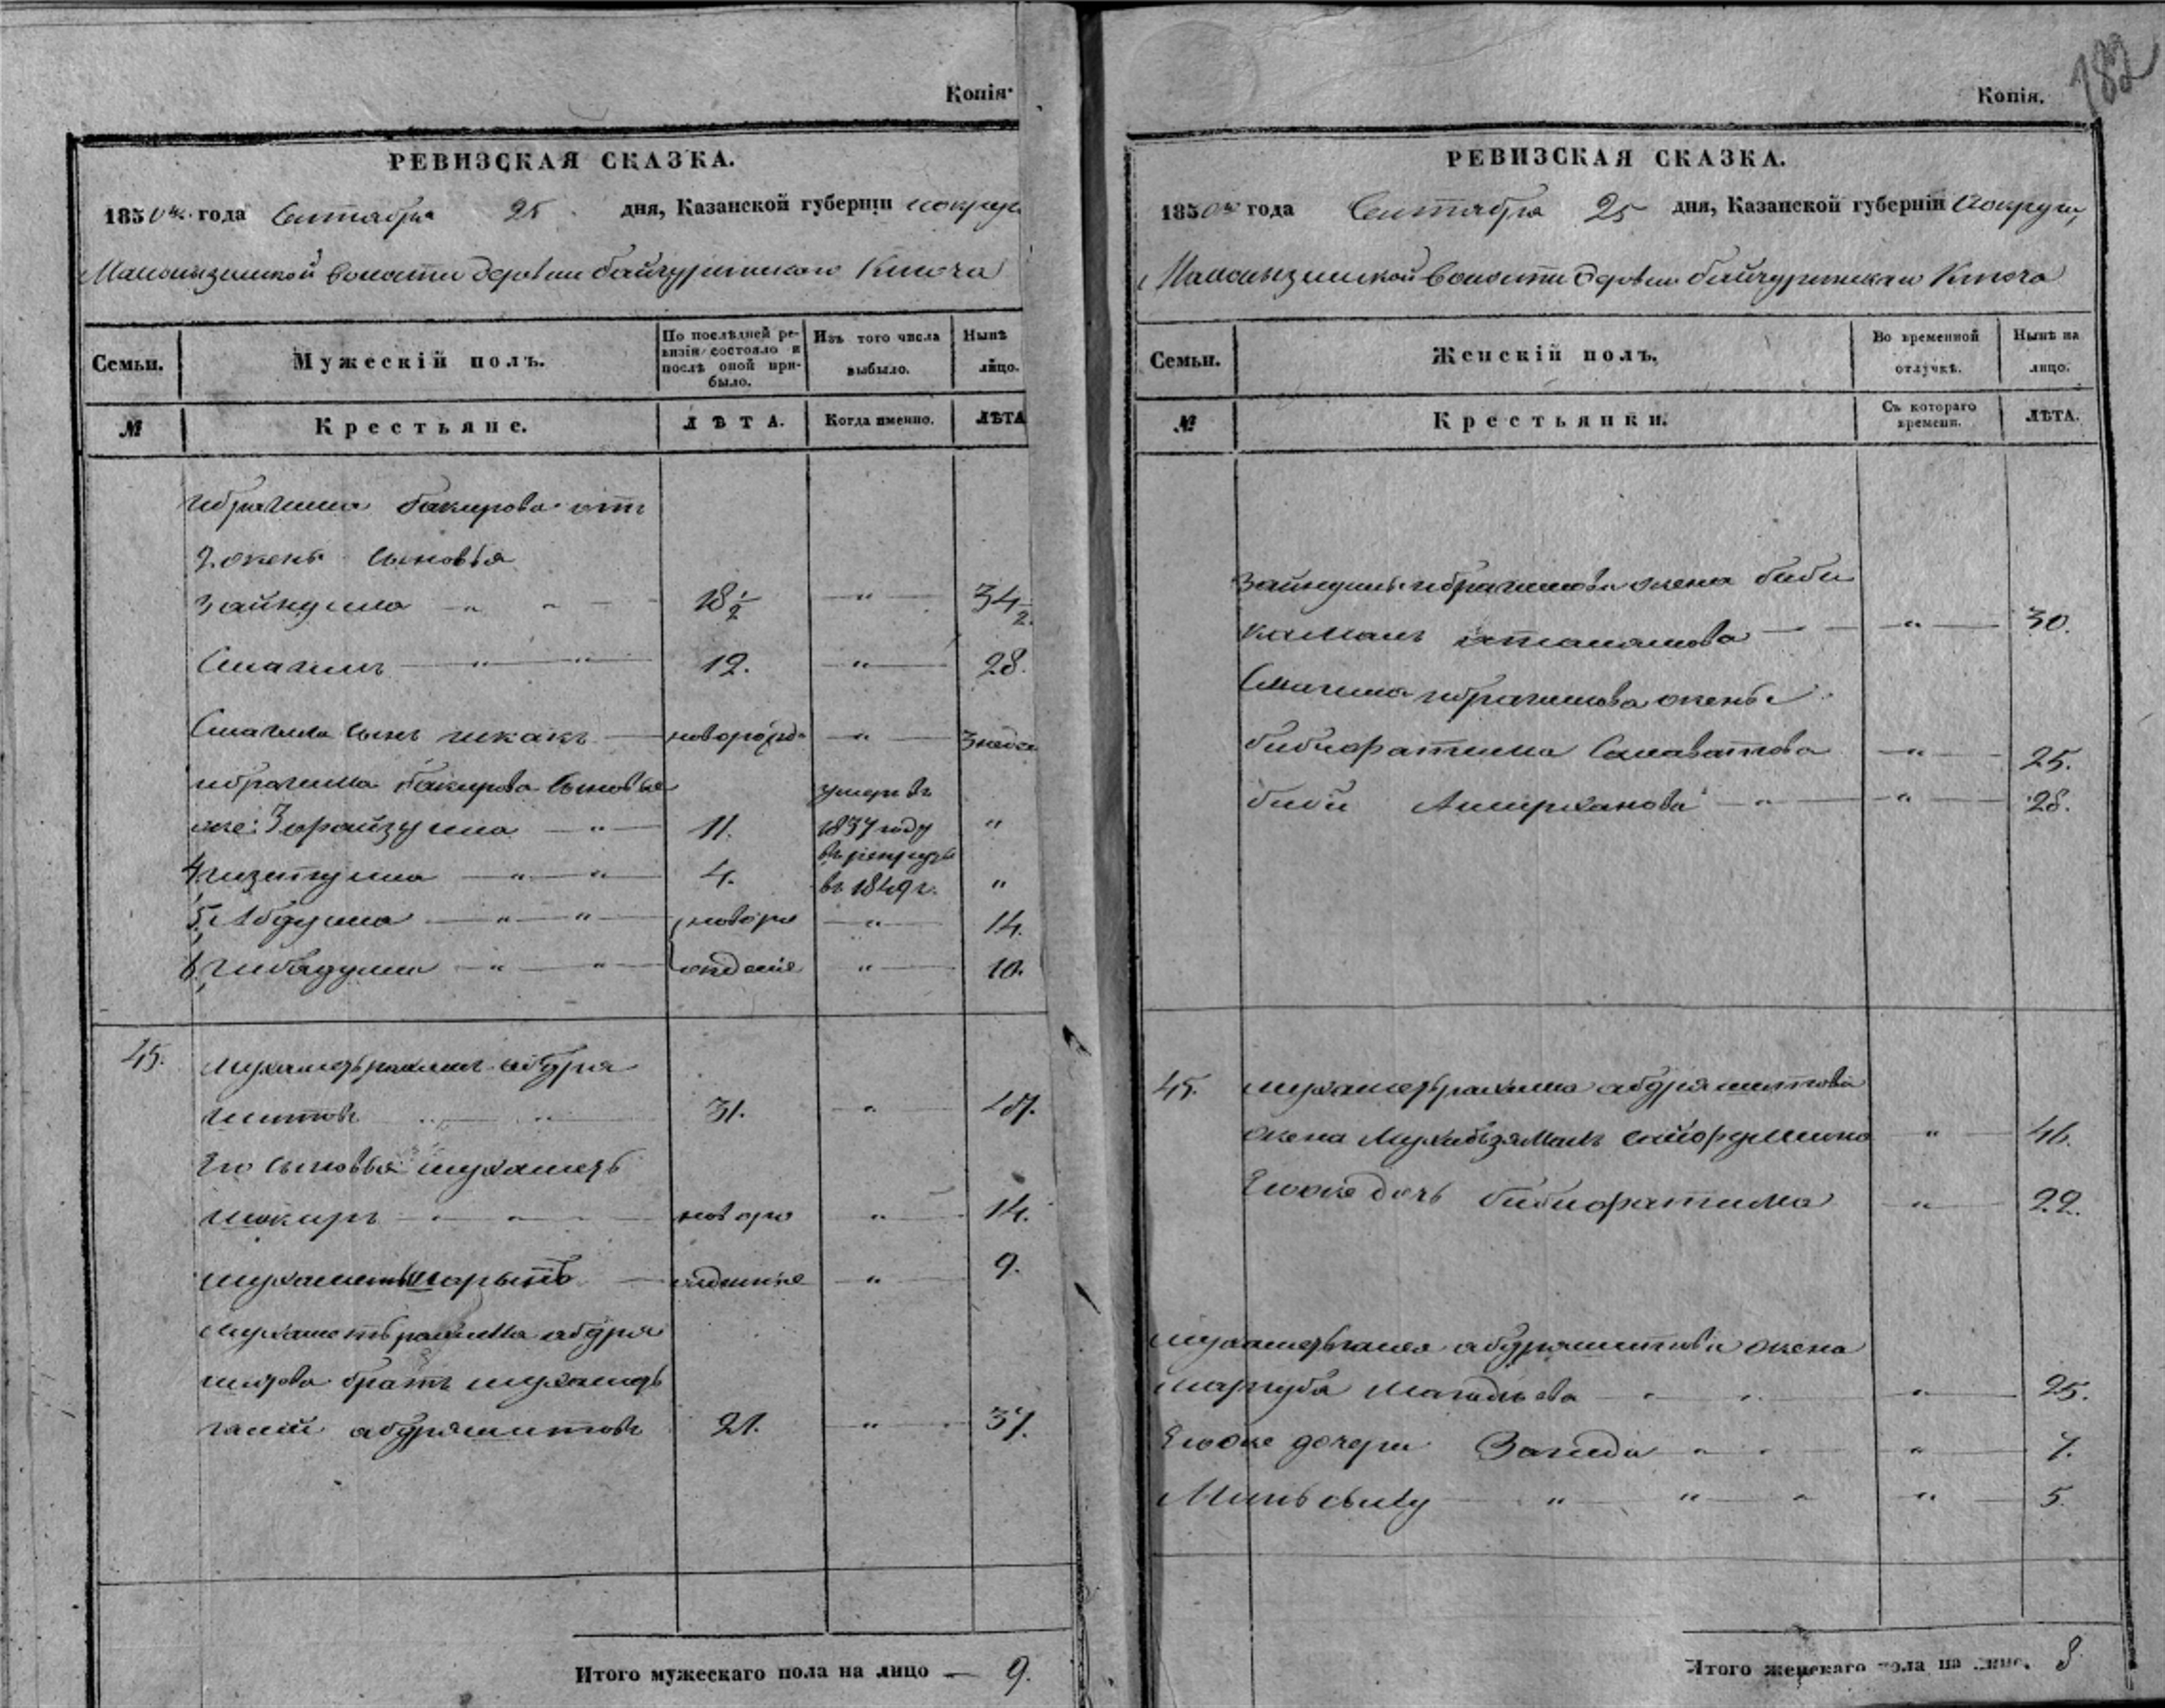 Копія.
РЕВИЗСКАЯ СКАЗКА.
1850 года Сентября 25 дня, Казанской губерніи и округи
волости деревни Байчуринскаго Ключа
Семьи.
Мужескій полъ.
По послѣдней ревизіи состояло и послѣ оной прибыло.
Изъ того числа выбыло.
Нынѣ лицо.
№
Крестьяне.
ЛѢТА.
Когда именно.
ЛѢТА
Ибрагима Бакирова от
2 жены сыновья
Зайнулла " " 18½ " 34½
Смагилъ " " 12. " 28.
Смагила сынъ новорожд " 3 недел
Ибрагима Бакирова сыновья
же: 3 Файзулла " 11. умеръ въ 1837 году "
4, Гизетулла " " 4. въ рекруты въ 1849 г. "
5, Абдулла " " новоро " 14.
6, Гибадулла " " жденые " 10.
45. Мухаметьрахимъ абдря
шитовъ " " 31. " 47.
Его сыновья мухаметь
шакиръ " " новоро " 14.
мухаметьшарыпъ жденные " 9.
Мухаметьрахима абдря
шитова братъ мухаметь
галій абдряшитовъ 21. " 37.
Итого мужескаго пола на лицо — 9.
Копія.
182
РЕВИЗСКАЯ СКАЗКА.
1850 года Сентября 25 дня, Казанской губерніи и округи,
волости деревни Байчуринскаго Ключа
Семьи.
Женскій полъ.
Во временной отлучкѣ.
Нынѣ на лицо.
№
Крестьянки.
Съ котораго времени.
ЛѢТА.
Зайнуллы ибрагимова жена биби
камалъ " 30.
Смагила ибрагимова жены
бибифатима Салаватова " 25.
биби Амирханова " " 28.
45. мухаметьрахима абдряшитова
жена Мухибзямалъ " 46.
Егоже дочь бибифатима " 22.
мухаметьгалея абдряшитова жена
маргуба " " " 25.
Егоже дочери Загида " " " 7.
" " " " 5.
Итого женскаго пола на лицо. 8